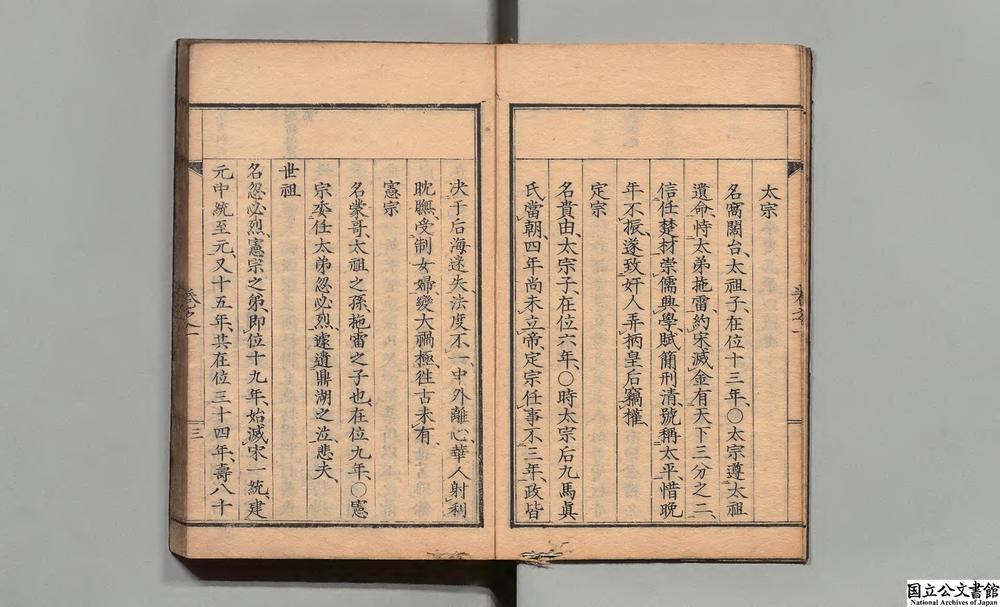 太宗
名窩闊台、太祖子、在位十三年、〇太宗遵太祖
遺命、恃太弟拖雷、約宋滅金、有天下三分之二、
信任楚材、崇儒興學、賦簡刑清、號稱太平、惜晚
年不振、遂致奸人弄柄、皇后竊權、
定宗
名貴由、太宗子、在位六年、〇時太宗后九馬眞
氏當朝、四年尚未立帝、定宗任事不三年、政皆
决于后、海迷失法度不一、中外離心、華人射利
耽嫵、受制女婦、變大禍極、徃古未有、
憲宗
名蒙哥、太祖之孫、拖雷之子也、在位九年、〇憲
宗委任太弟忽必烈、遽遺鼎湖之泣、悲夫、
世祖
名忽必烈、憲宗之弟、即位十九年、始滅宋一統、建
元中統至元、又十五年、共在位三十四年、壽八十
卷之一
三
国立公文書館
National Archives of Japan